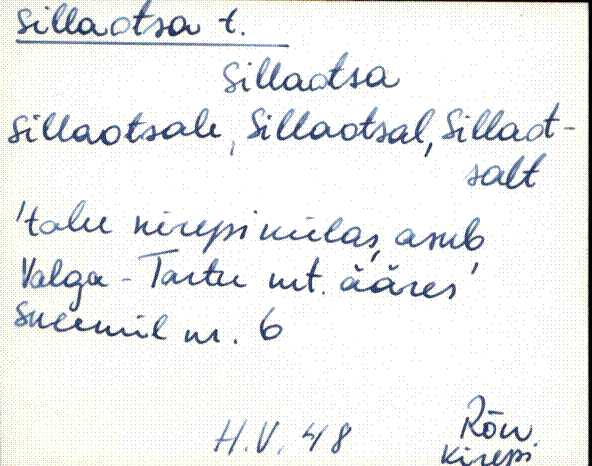 Sillaotsa t.
Sillaotsa
Sillaotsale, Sillaotsal, Sillaot-
salt
'talu Kirepi külas, asub
Valga - Tartu mt. ääres'
Suurmil nr. 6
H.V. 48
Rõn.
Kirepi